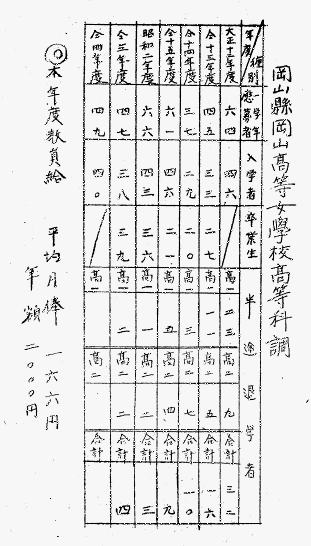 岡山縣岡山高等女學校高等科調
年度 種別 一学年應募者 入学者 卒業生 半途退学者
大正十二年度 六四 四六 高一 二三 高二 九 合計 三二
仝十三年度 四五 三三 二七 高一 一一 高二 五 合計 一六
仝十四年度 三七 二九 二〇 高一 三 高二 七 合計 一〇
仝十五年度 六一 四六 二一 高一 五 高二 四 合計 九
昭和二年度 六六 四三 三六 高一 一 高二 二 合計 三
仝三年度 四七 三八 三九 高一 二 高二 二 合計 四
仝四年度 四九 四〇 高一 高二 合計
◎本年度教員給 平均月俸 一六六円
年額 二〇〇〇円